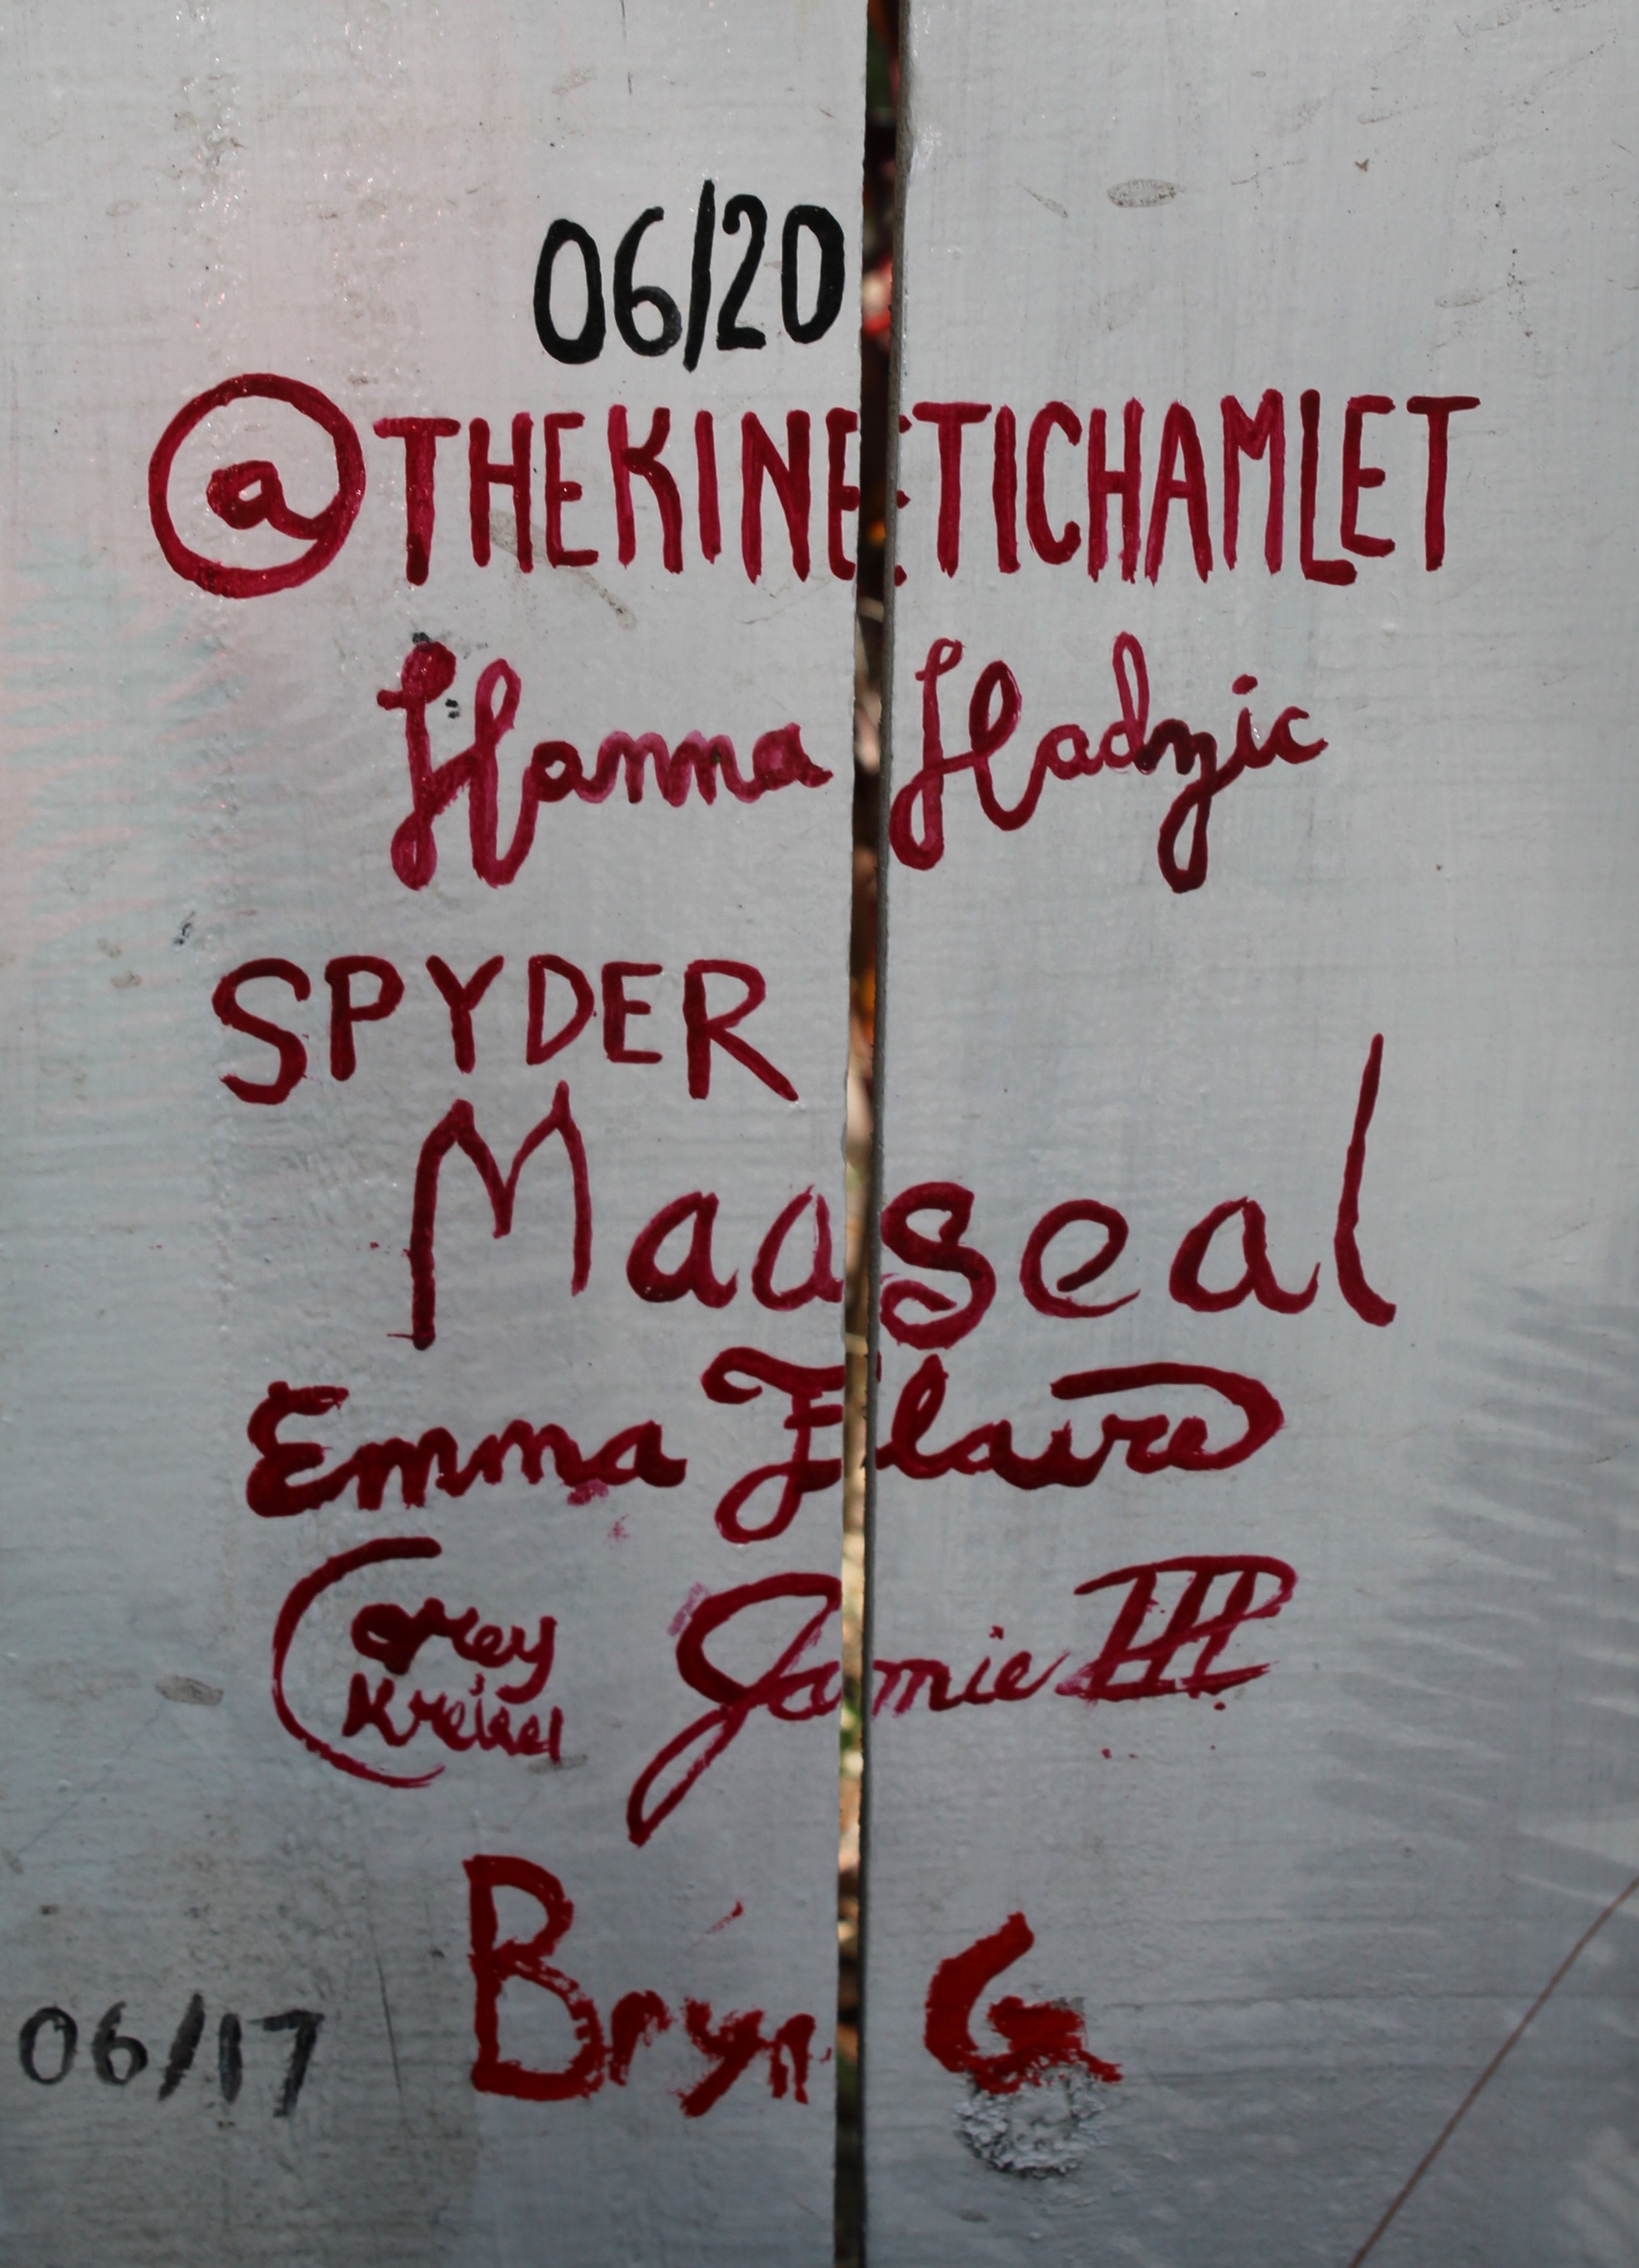 06/20
@THEKINETICHAMLET
Hanna Hadzic
SPYDER
Maaseal
Emma Flaire
Corey Jamie III
Kreisel
Bryn G
06/17